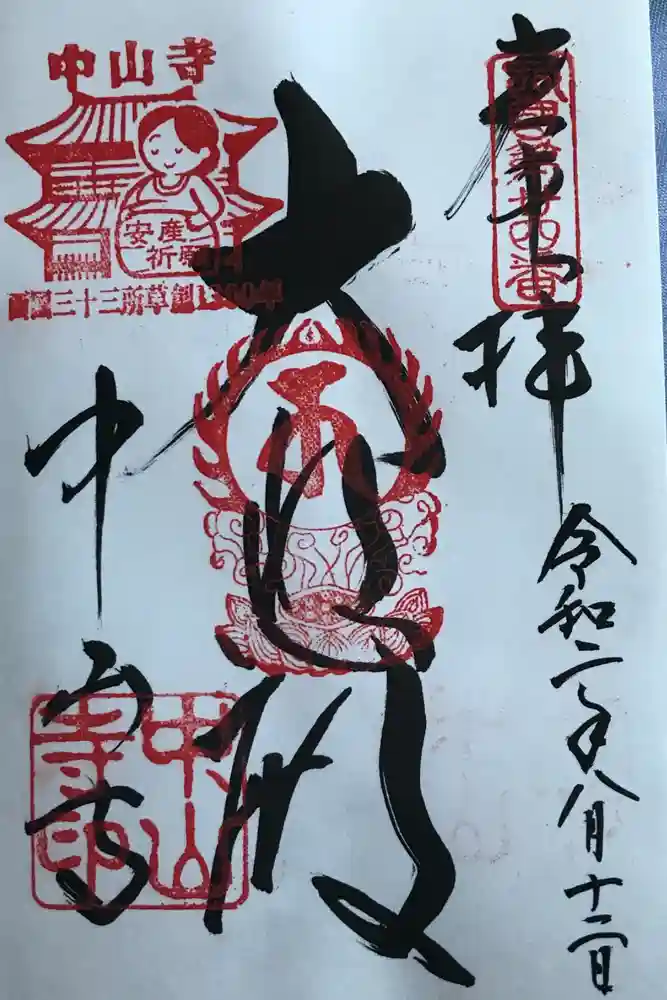 奉拝
西國第廿四番
令和二年八月十二日
大悲殿
中山寺
安産
祈願
西国三十三所草創1300年
中山寺
中山寺印